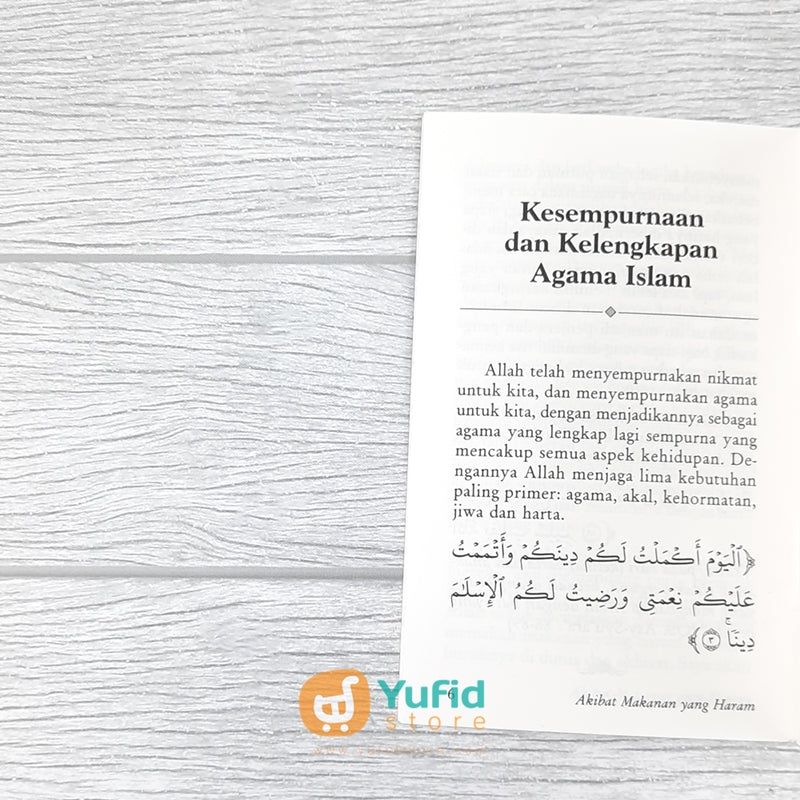 Kesempurnaan
dan Kelengkapan
Agama Islam
Allah telah menyempurnakan nikmat
untuk kita, dan menyempurnakan agama
untuk kita, dengan menjadikannya sebagai
agama yang lengkap lagi sempurna yang
mencakup semua aspek kehidupan. De-
ngannya Allah menjaga lima kebutuhan
paling primer: agama, akal, kehormatan,
jiwa dan harta.
﴿ٱلْيَوْمَ أَكْمَلْتُ لَكُمْ دِينَكُمْ وَأَتْمَمْتُ
عَلَيْكُمْ نِعْمَتِى وَرَضِيتُ لَكُمُ ٱلْإِسْلَٰمَ
دِينًا ۚ ٣﴾
6
Akibat Makanan yang Haram
Yufid
store